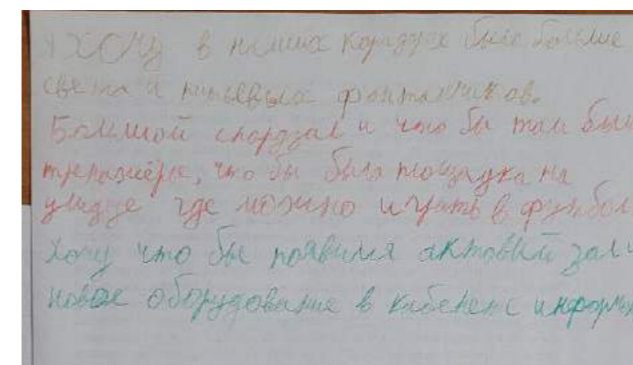 Я хочу в наших коридорах было больше
света и питьевых фонтанчиков.
Большой спордзал и что бы там был
тренажёры, что бы была площадка на
улидуе где можно играть в футбол
Хочу что бы появился актовый зал
новое оборудование в кабенете информ